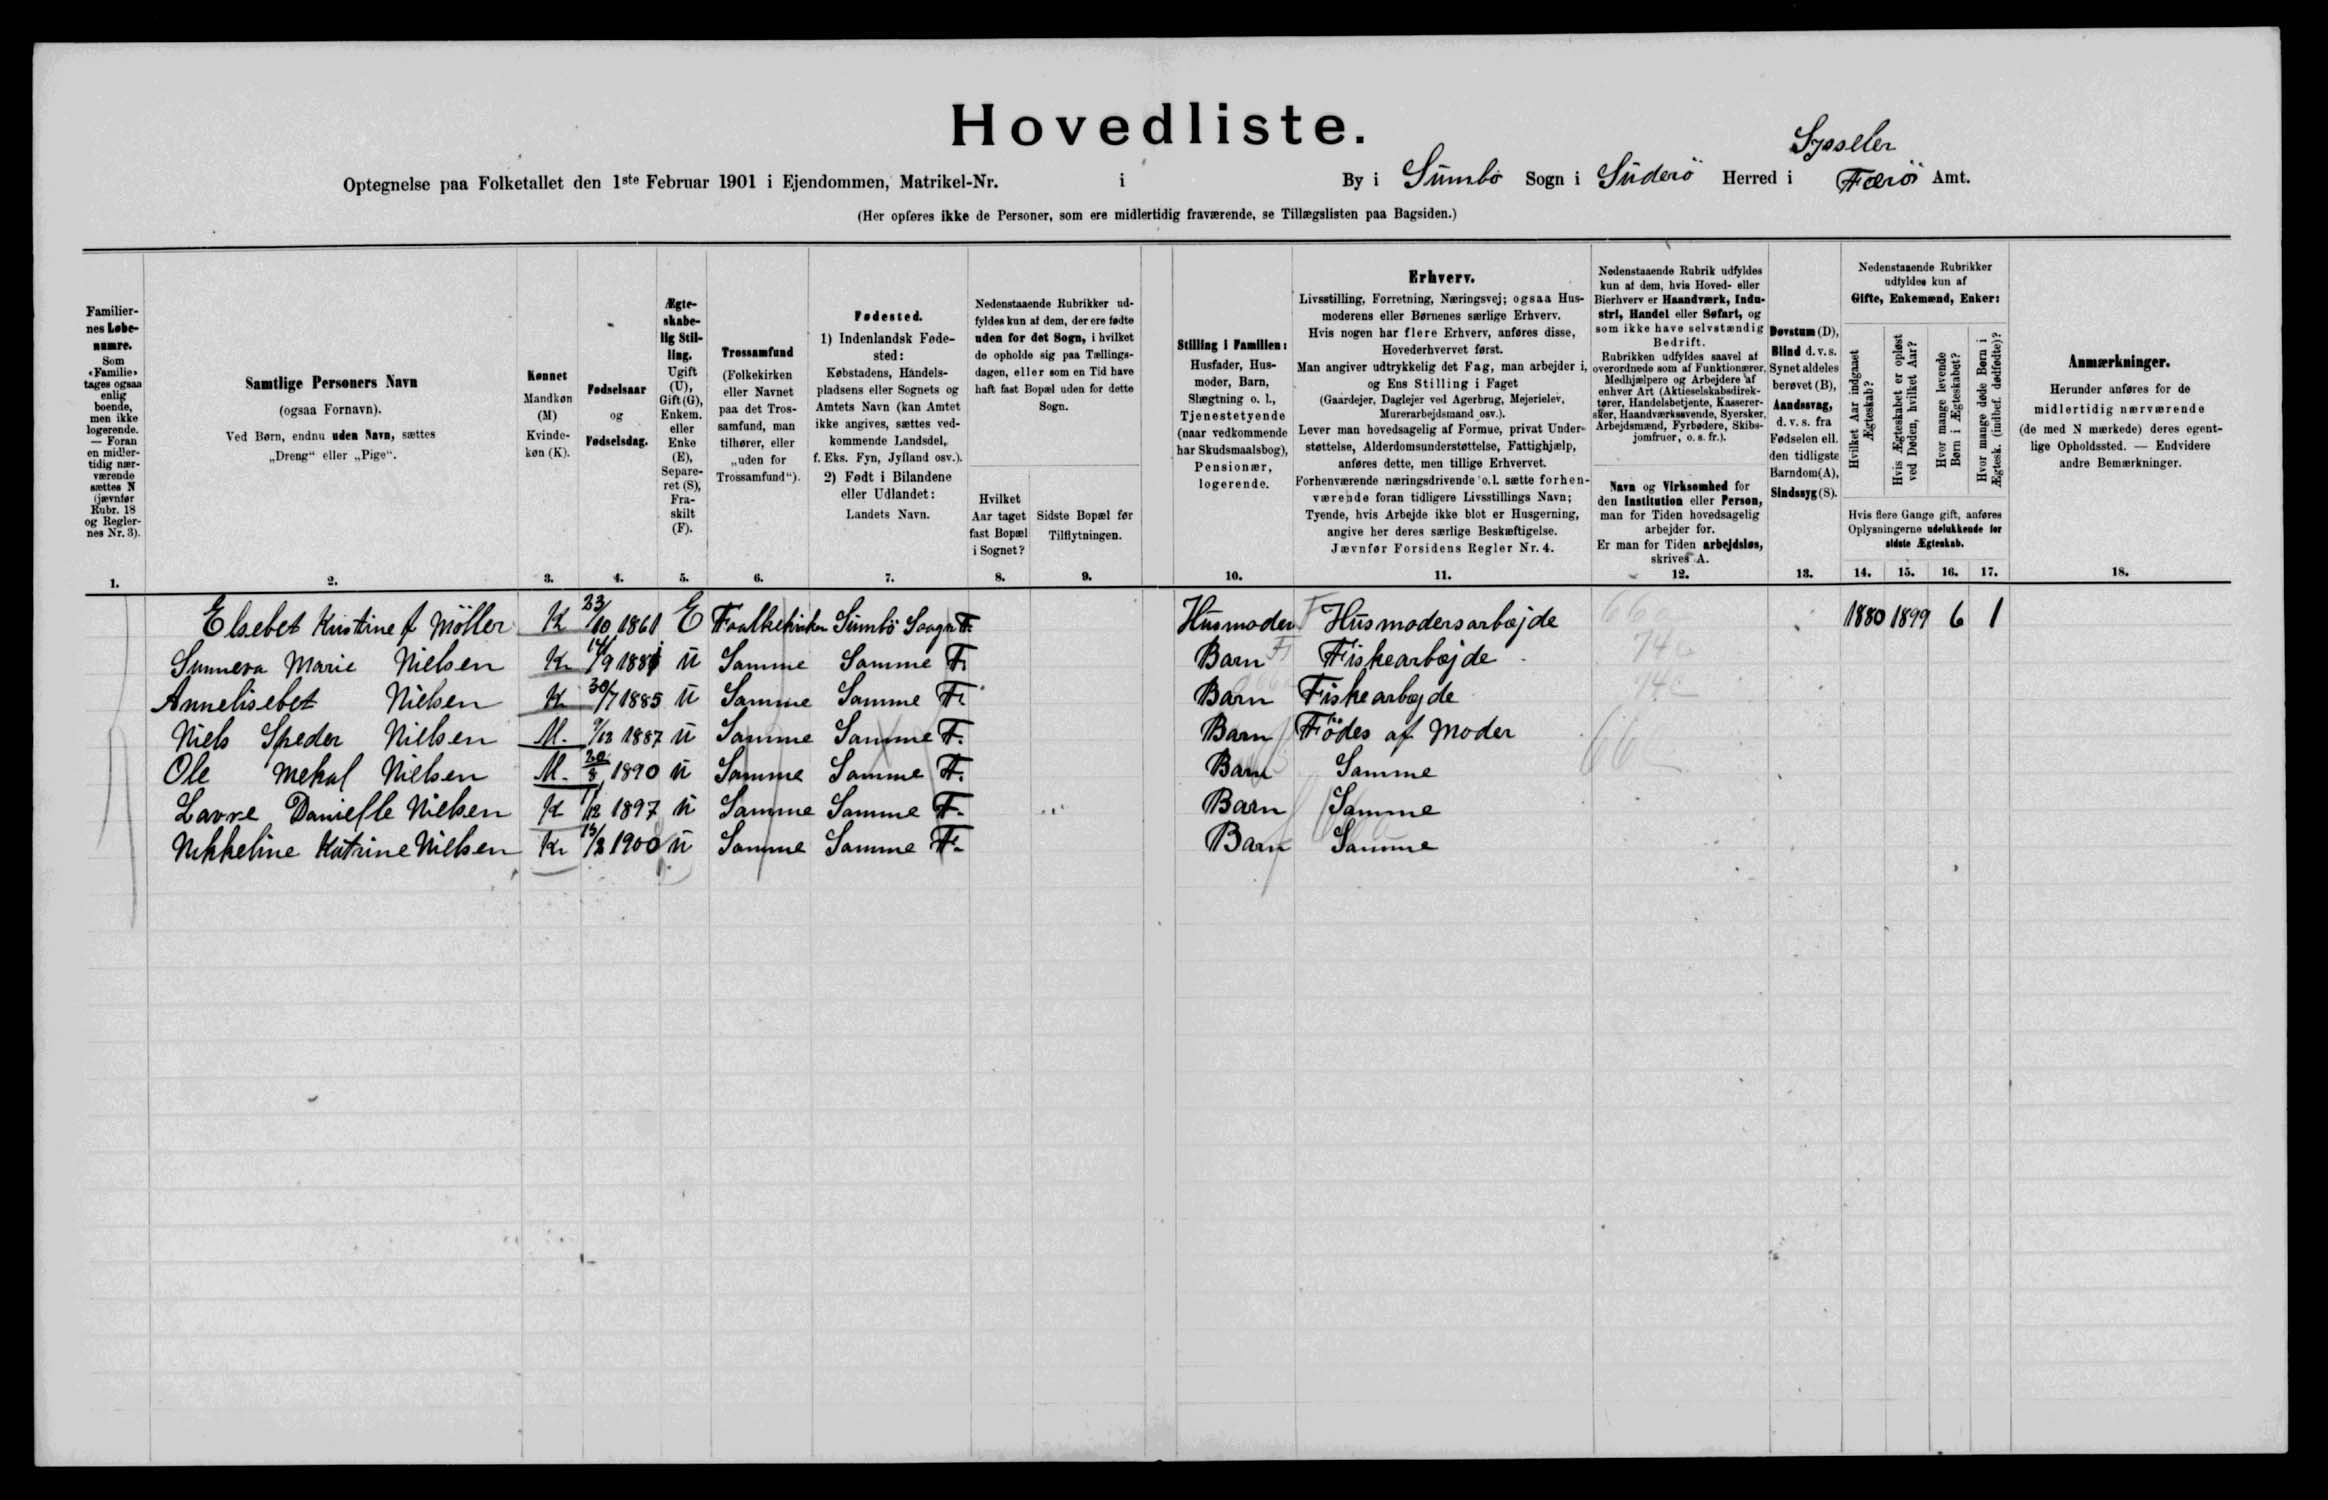 Hovedliste.
Sysseler
Optegnelse paa Folketallet den 1ste Februar 1901 i Ejendommen, Matrikel-Nr. i By i Sumbö Sogn i Suderö Herred i Færöi Amt.
(Her opføres ikke de Personer, som ere midlertidig fraværende, se Tillægslisten paa Bagsiden.)
Familier-
nes Løbe-
numre.
Som
«Familie»
tages ogsaa
enlig
boende,
men ikke
logerende.
— Foran
en midler-
tidig nær-
værende
sættes N
(jævnfør
Rubr. 18
og Regler-
nes Nr. 3).
1.
Samtlige Personers Navn
(ogsaa Fornavn).
Ved Børn, endnu uden Navn, sættes
„Dreng“ eller „Pige“.
2.
Kønnet
Mandkøn
(M)
Kvinde-
køn (K).
3.
Fødselsaar
og
Fødselsdag.
4.
Ægte-
skabe-
lig Stil-
ling.
Ugift
(U),
Gift (G),
Enkem.
eller
Enke
(E),
Separe-
ret (S),
Fra-
skilt
(F).
5.
Trossamfund
(Folkekirken
eller Navnet
paa det Tros-
samfund, man
tilhører, eller
„uden for
Trossamfund“).
6.
Fødested.
1) Indenlandsk Føde-
sted:
Købstadens, Handels-
pladsens eller Sognets og
Amtets Navn (kan Amtet
ikke angives, sættes ved-
kommende Landsdel,
f. Eks. Fyn, Jylland osv.).
2) Født i Bilandene
eller Udlandet:
Landets Navn.
7.
Nedenstaaende Rubrikker ud-
fyldes kun af dem, der ere fødte
uden for det Sogn, i hvilket
de opholde sig paa Tællings-
dagen, eller som en Tid have
haft fast Bopæl uden for dette
Sogn.
Hvilket
Aar taget
fast Bopæl
i Sognet?
8.
Sidste Bopæl før
Tilflytningen.
9.
Stilling i Familien:
Husfader, Hus-
moder, Barn,
Slægtning o. l.,
Tjenestetyende
(naar vedkommende
har Skudsmaalsbog),
Pensionær,
logerende.
10.
Erhverv.
Livsstilling, Forretning, Næringsvej; ogsaa Hus-
moderens eller Børnenes særlige Erhverv.
Hvis nogen har flere Erhverv, anføres disse,
Hovederhvervet først.
Man angiver udtrykkelig det Fag, man arbejder i,
og Ens Stilling i Faget
(Gaardejer, Daglejer ved Agerbrug, Mejerielev,
Murerarbejdsmand osv.).
Lever man hovedsagelig af Formue, privat Under-
støttelse, Alderdomsunderstøttelse, Fattighjælp,
anføres dette, men tillige Erhvervet.
Forhenværende næringsdrivende o. l. sætte forhen-
værende foran tidligere Livsstillings Navn;
Tyende, hvis Arbejde ikke blot er Husgerning,
angive her deres særlige Beskæftigelse.
Jævnfør Forsidens Regler Nr. 4.
11.
Nedenstaaende Rubrik udfyldes
kun af dem, hvis Hoved- eller
Bierhverv er Haandværk, Indu-
stri, Handel eller Søfart, og
som ikke have selvstændig
Bedrift.
Rubrikken udfyldes saavel af
overordnede som af Funktionærer,
Medhjælpere og Arbejdere af
enhver Art (Aktieselskabsdirek-
tører, Handelsbetjente, Kasserer-
sker, Haandværkssvende, Syersker,
Arbejdsmænd, Fyrbødere, Skibs-
jomfruer, o. s. fr.).
Navn og Virksomhed for
den Institution eller Person,
man for Tiden hovedsagelig
arbejder for.
Er man for Tiden arbejdsløs,
skrives A.
12.
Døvstum (D),
Blind d. v. s.
Synet aldeles
berøvet (B),
Aandssvag,
d. v. s. fra
Fødselen ell.
den tidligste
Barndom (A),
Sindssyg (S).
13.
Nedenstaaende Rubrikker
udfyldes kun af
Gifte, Enkemænd, Enker:
Hvilket Aar indgaaet
Ægteskab?
Hvis Ægteskabet er opløst
ved Døden, hvilket Aar?
Hvor mange levende
Børn i Ægteskabet?
Hvor mange døde Børn i
Ægtesk. (indbef. dødfødte)?
Hvis flere Gange gift, anføres
Oplysningerne udelukkende for
sidste Ægteskab.
14. 15. 16. 17.
Anmærkninger.
Herunder anføres for de
midlertidig nærværende
(de med N mærkede) deres egent-
lige Opholdssted. — Endvidere
andre Bemærkninger.
18.
Elsebet Kristine f Möller K 23/10 1861 E Foolkekirken Sumbö Soagn F. Husmoder Husmodersarbejde 66 1880 1899 6 1
Sunneva Marie Nielsen K 14/9 1881 U Samme Samme F. Barn Fiskearbejde 74c
Annelisebet Nielsen K 30/7 1885 U Samme Samme F. Barn Fiskearbejde 74c
Niels Nielsen M. 9/12 1887 U Samme Samme F. Barn Födes af Moder 66
Ole Mekal Nielsen M. 20/8 1890 U Samme Samme F. Barn Samme
Lavre Nielsen K 1/12 1897 U Samme Samme F. Barn Samme
Nikkeline Katrine Nielsen K 1900 U Samme Samme F. Barn Samme